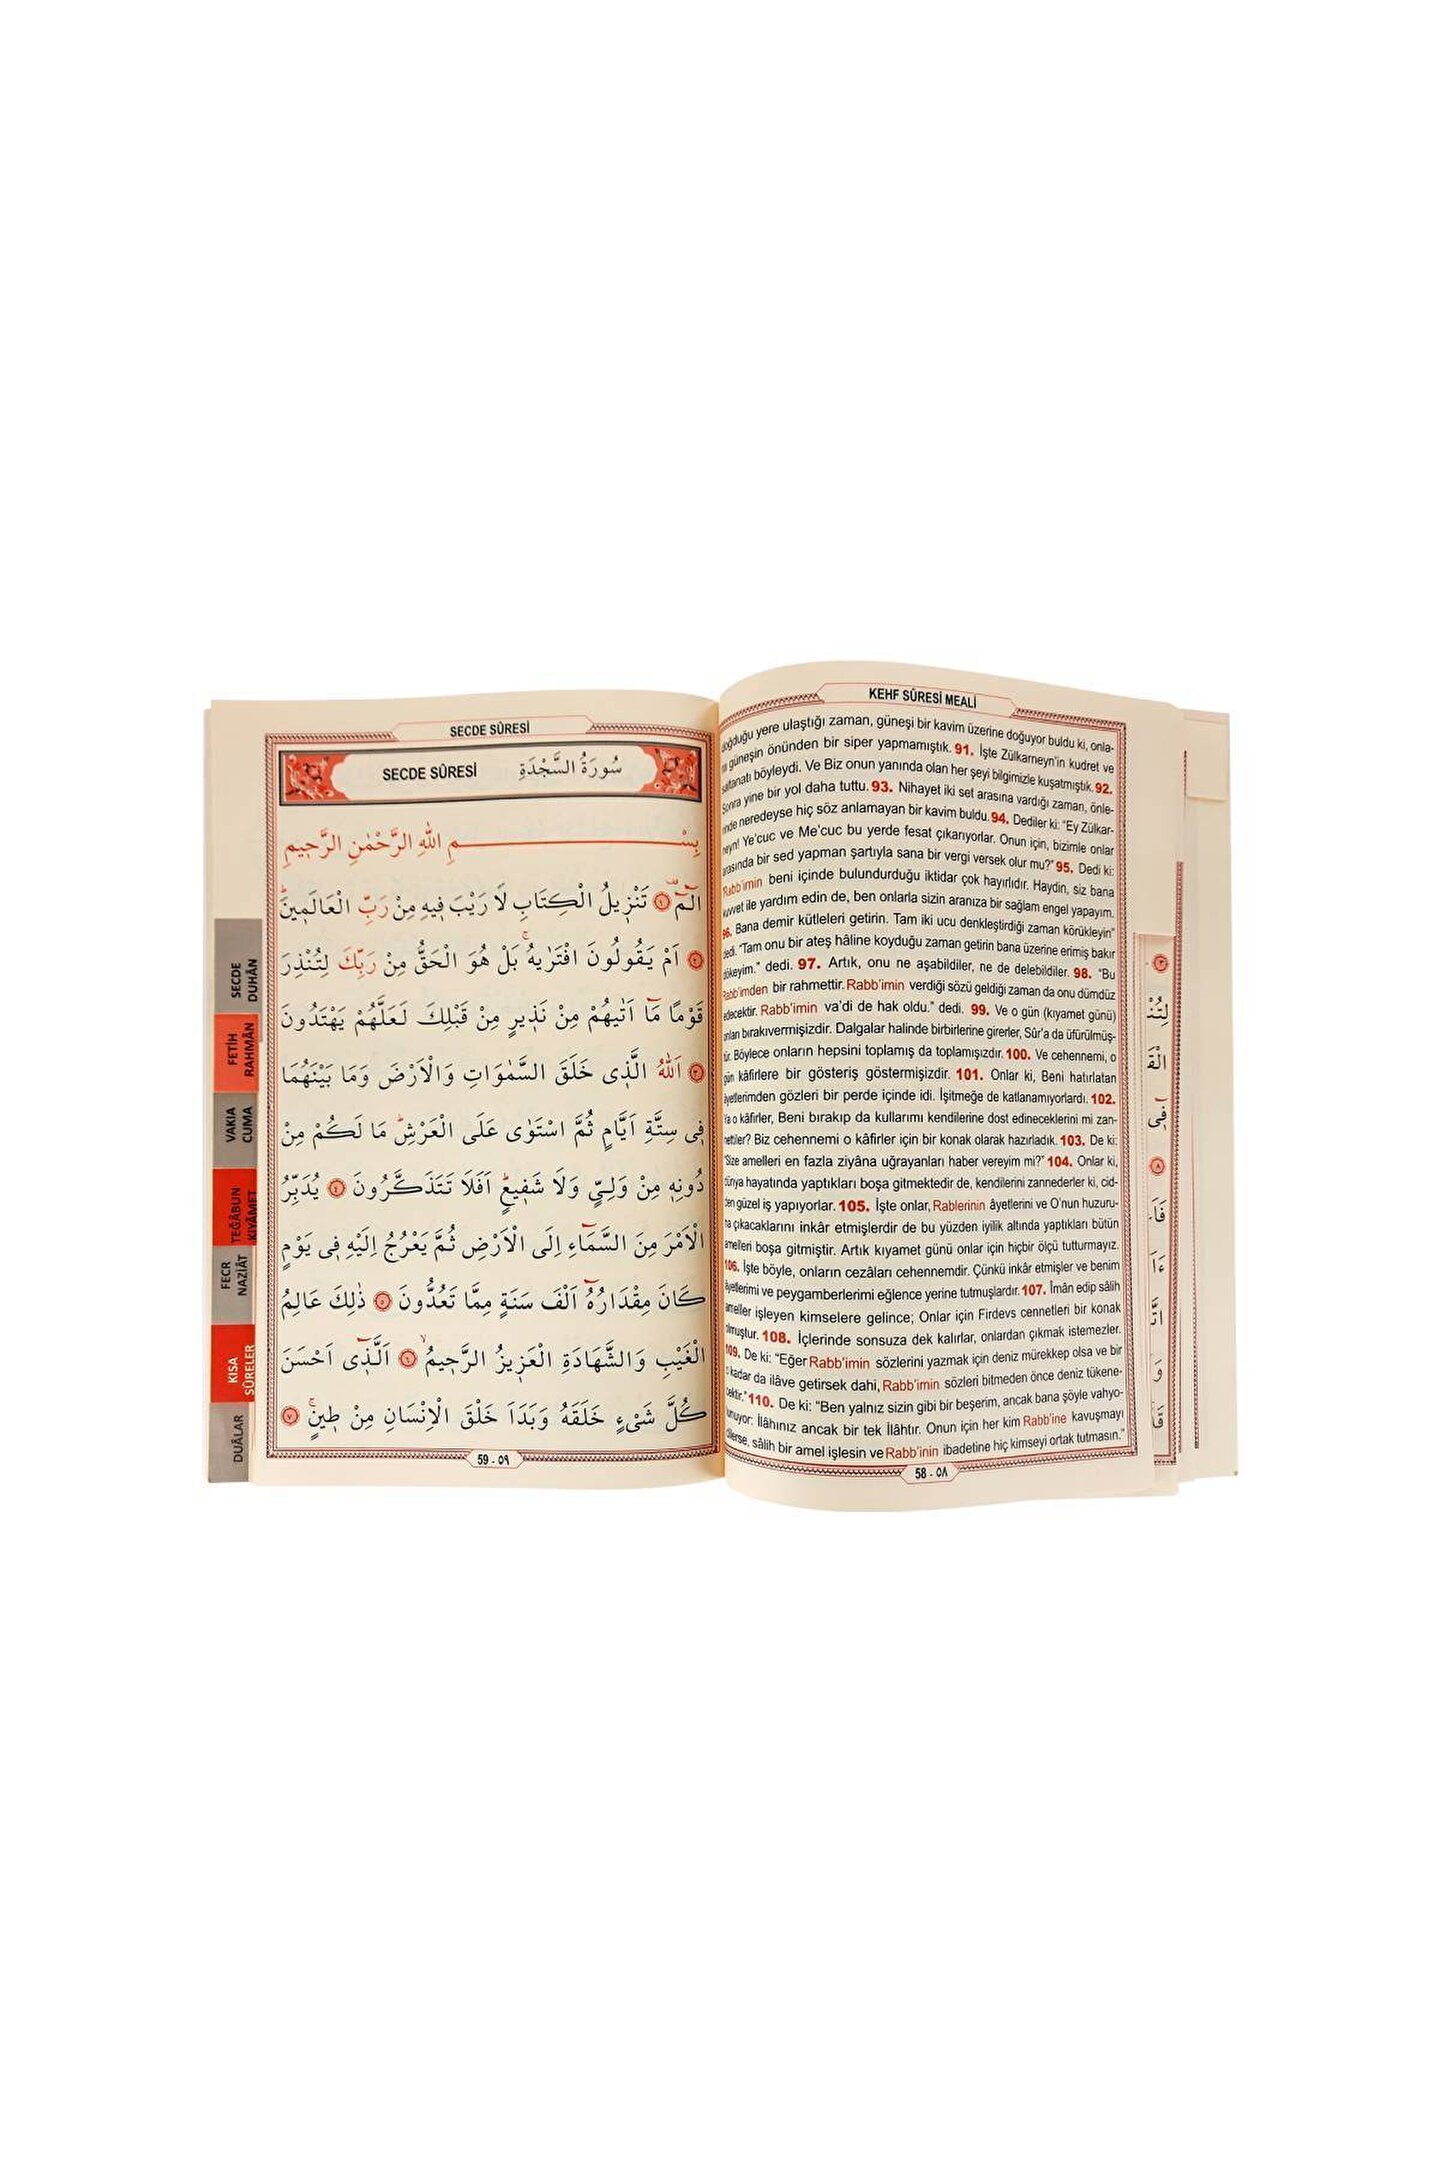 KEHF SÛRESİ MEALİ
doğduğu yere ulaştığı zaman, güneşi bir kavim üzerine doğuyor buldu ki, onla-
güneşin önünden bir siper yapmamıştık. 91. İşte Zülkarneyn'in kudret ve
saltanatı böyleydi. Ve Biz onun yanında olan her şeyi bilgimizle kuşatmıştık. 92.
Sonra yine bir yol daha tuttu. 93. Nihayet iki set arasına vardığı zaman, önle-
rinde neredeyse hiç söz anlamayan bir kavim buldu. 94. Dediler ki: "Ey Zülkar-
neyn! Ye'cuc ve Me'cuc bu yerde fesat çıkarıyorlar. Onun için, bizimle onlar
arasında bir sed yapman şartıyla sana bir vergi versek olur mu?" 95. Dedi ki:
"Rabb'imin beni içinde bulundurduğu iktidar çok hayırlıdır. Haydin, siz bana
kuvvet ile yardım edin de, ben onlarla sizin aranıza bir sağlam engel yapayım.
96. Bana demir kütleleri getirin. Tam iki ucu denkleştirdiği zaman körükleyin"
dedi. "Tam onu bir ateş hâline koyduğu zaman getirin bana üzerine erimiş bakır
dökeyim." dedi. 97. Artık, onu ne aşabildiler, ne de delebildiler. 98. "Bu
Rabb'imden bir rahmettir. Rabb'imin verdiği sözü geldiği zaman da onu dümdüz
edecektir. Rabb'imin va'di de hak oldu." dedi. 99. Ve o gün (kıyamet günü)
onları bırakıvermişizdir. Dalgalar halinde birbirlerine girerler, Sûr'a da üfürülmüş-
tür. Böylece onların hepsini toplamış da toplamışızdır. 100. Ve cehennemi, o
gün kâfirlere bir gösteriş göstermişizdir. 101. Onlar ki, Beni hatırlatan
âyetlerimden gözleri bir perde içinde idi. İşitmeğe de katlanamıyorlardı. 102.
Ya o kâfirler, Beni bırakıp da kullarımı kendilerine dost edineceklerini mi zan-
nettiler? Biz cehennemi o kâfirler için bir konak olarak hazırladık. 103. De ki:
"Size amelleri en fazla ziyâna uğrayanları haber vereyim mi?" 104. Onlar ki,
dünya hayatında yaptıkları boşa gitmektedir de, kendilerini zannederler ki, cid-
den güzel iş yapıyorlar. 105. İşte onlar, Rablerinin âyetlerini ve O'nun huzuru-
na çıkacaklarını inkâr etmişlerdir de bu yüzden iyilik altında yaptıkları bütün
amelleri boşa gitmiştir. Artık kıyamet günü onlar için hiçbir ölçü tutturmayız.
106. İşte böyle, onların cezâları cehennemdir. Çünkü inkâr etmişler ve benim
âyetlerimi ve peygamberlerimi eğlence yerine tutmuşlardır. 107. Îmân edip sâlih
ameller işleyen kimselere gelince; Onlar için Firdevs cennetleri bir konak
olmuştur. 108. İçlerinde sonsuza dek kalırlar, onlardan çıkmak istemezler.
109. De ki: "Eğer Rabb'imin sözlerini yazmak için deniz mürekkep olsa ve bir
o kadar da ilâve getirsek dahi, Rabb'imin sözleri bitmeden önce deniz tükene-
cektir." 110. De ki: "Ben yalnız sizin gibi bir beşerim, ancak bana şöyle vahyo-
lunuyor: İlâhınız ancak bir tek İlâhtır. Onun için her kim Rabb'ine kavuşmayı
dilerse, sâlih bir amel işlesin ve Rabb'inin ibadetine hiç kimseyi ortak tutmasın."
58 - ٥٨
SECDE SÛRESİ
SECDE SÛRESİ سُورَةُ السَّجْدَةِ
بِسْمِ اللّٰهِ الرَّحْمٰنِ الرَّحٖيمِ
الٓمٓ ﴿١﴾ تَنْزٖيلُ الْكِتَابِ لَا رَيْبَ فٖيهِ مِنْ رَبِّ الْعَالَمٖينَؕ
﴿٢﴾ اَمْ يَقُولُونَ افْتَرٰيهُۚ بَلْ هُوَ الْحَقُّ مِنْ رَبِّكَ لِتُنْذِرَ
قَوْمًا مَٓا اَتٰيهُمْ مِنْ نَذٖيرٍ مِنْ قَبْلِكَ لَعَلَّهُمْ يَهْتَدُونَ
﴿٣﴾ اَللّٰهُ الَّذٖى خَلَقَ السَّمٰوَاتِ وَالْاَرْضَ وَمَا بَيْنَهُمَا
فٖى سِتَّةِ اَيَّامٍ ثُمَّ اسْتَوٰى عَلَى الْعَرْشِؕ مَا لَكُمْ مِنْ
دُونِهٖ مِنْ وَلِىٍّ وَلَا شَفٖيعٍؕ اَفَلَا تَتَذَكَّرُونَ ﴿٤﴾ يُدَبِّرُ
الْاَمْرَ مِنَ السَّمَٓاءِ اِلَى الْاَرْضِ ثُمَّ يَعْرُجُ اِلَيْهِ فٖى يَوْمٍ
كَانَ مِقْدَارُهُٓ اَلْفَ سَنَةٍ مِمَّا تَعُدُّونَ ﴿٥﴾ ذٰلِكَ عَالِمُ
الْغَيْبِ وَالشَّهَادَةِ الْعَزٖيزُ الرَّحٖيمُۙ ﴿٦﴾ اَلَّذٖٓى اَحْسَنَ
كُلَّ شَىْءٍ خَلَقَهُ وَبَدَاَ خَلْقَ الْاِنْسَانِ مِنْ طٖينٍۚ ﴿٧﴾
59 - ٥٩
SECDE
DUHÂN
FETİH
RAHMÂN
VAKIA
CUMA
TEĞÂBUN
KIYÂMET
FECR
NAZİÂT
KISA
SÛRELER
DUÂLAR